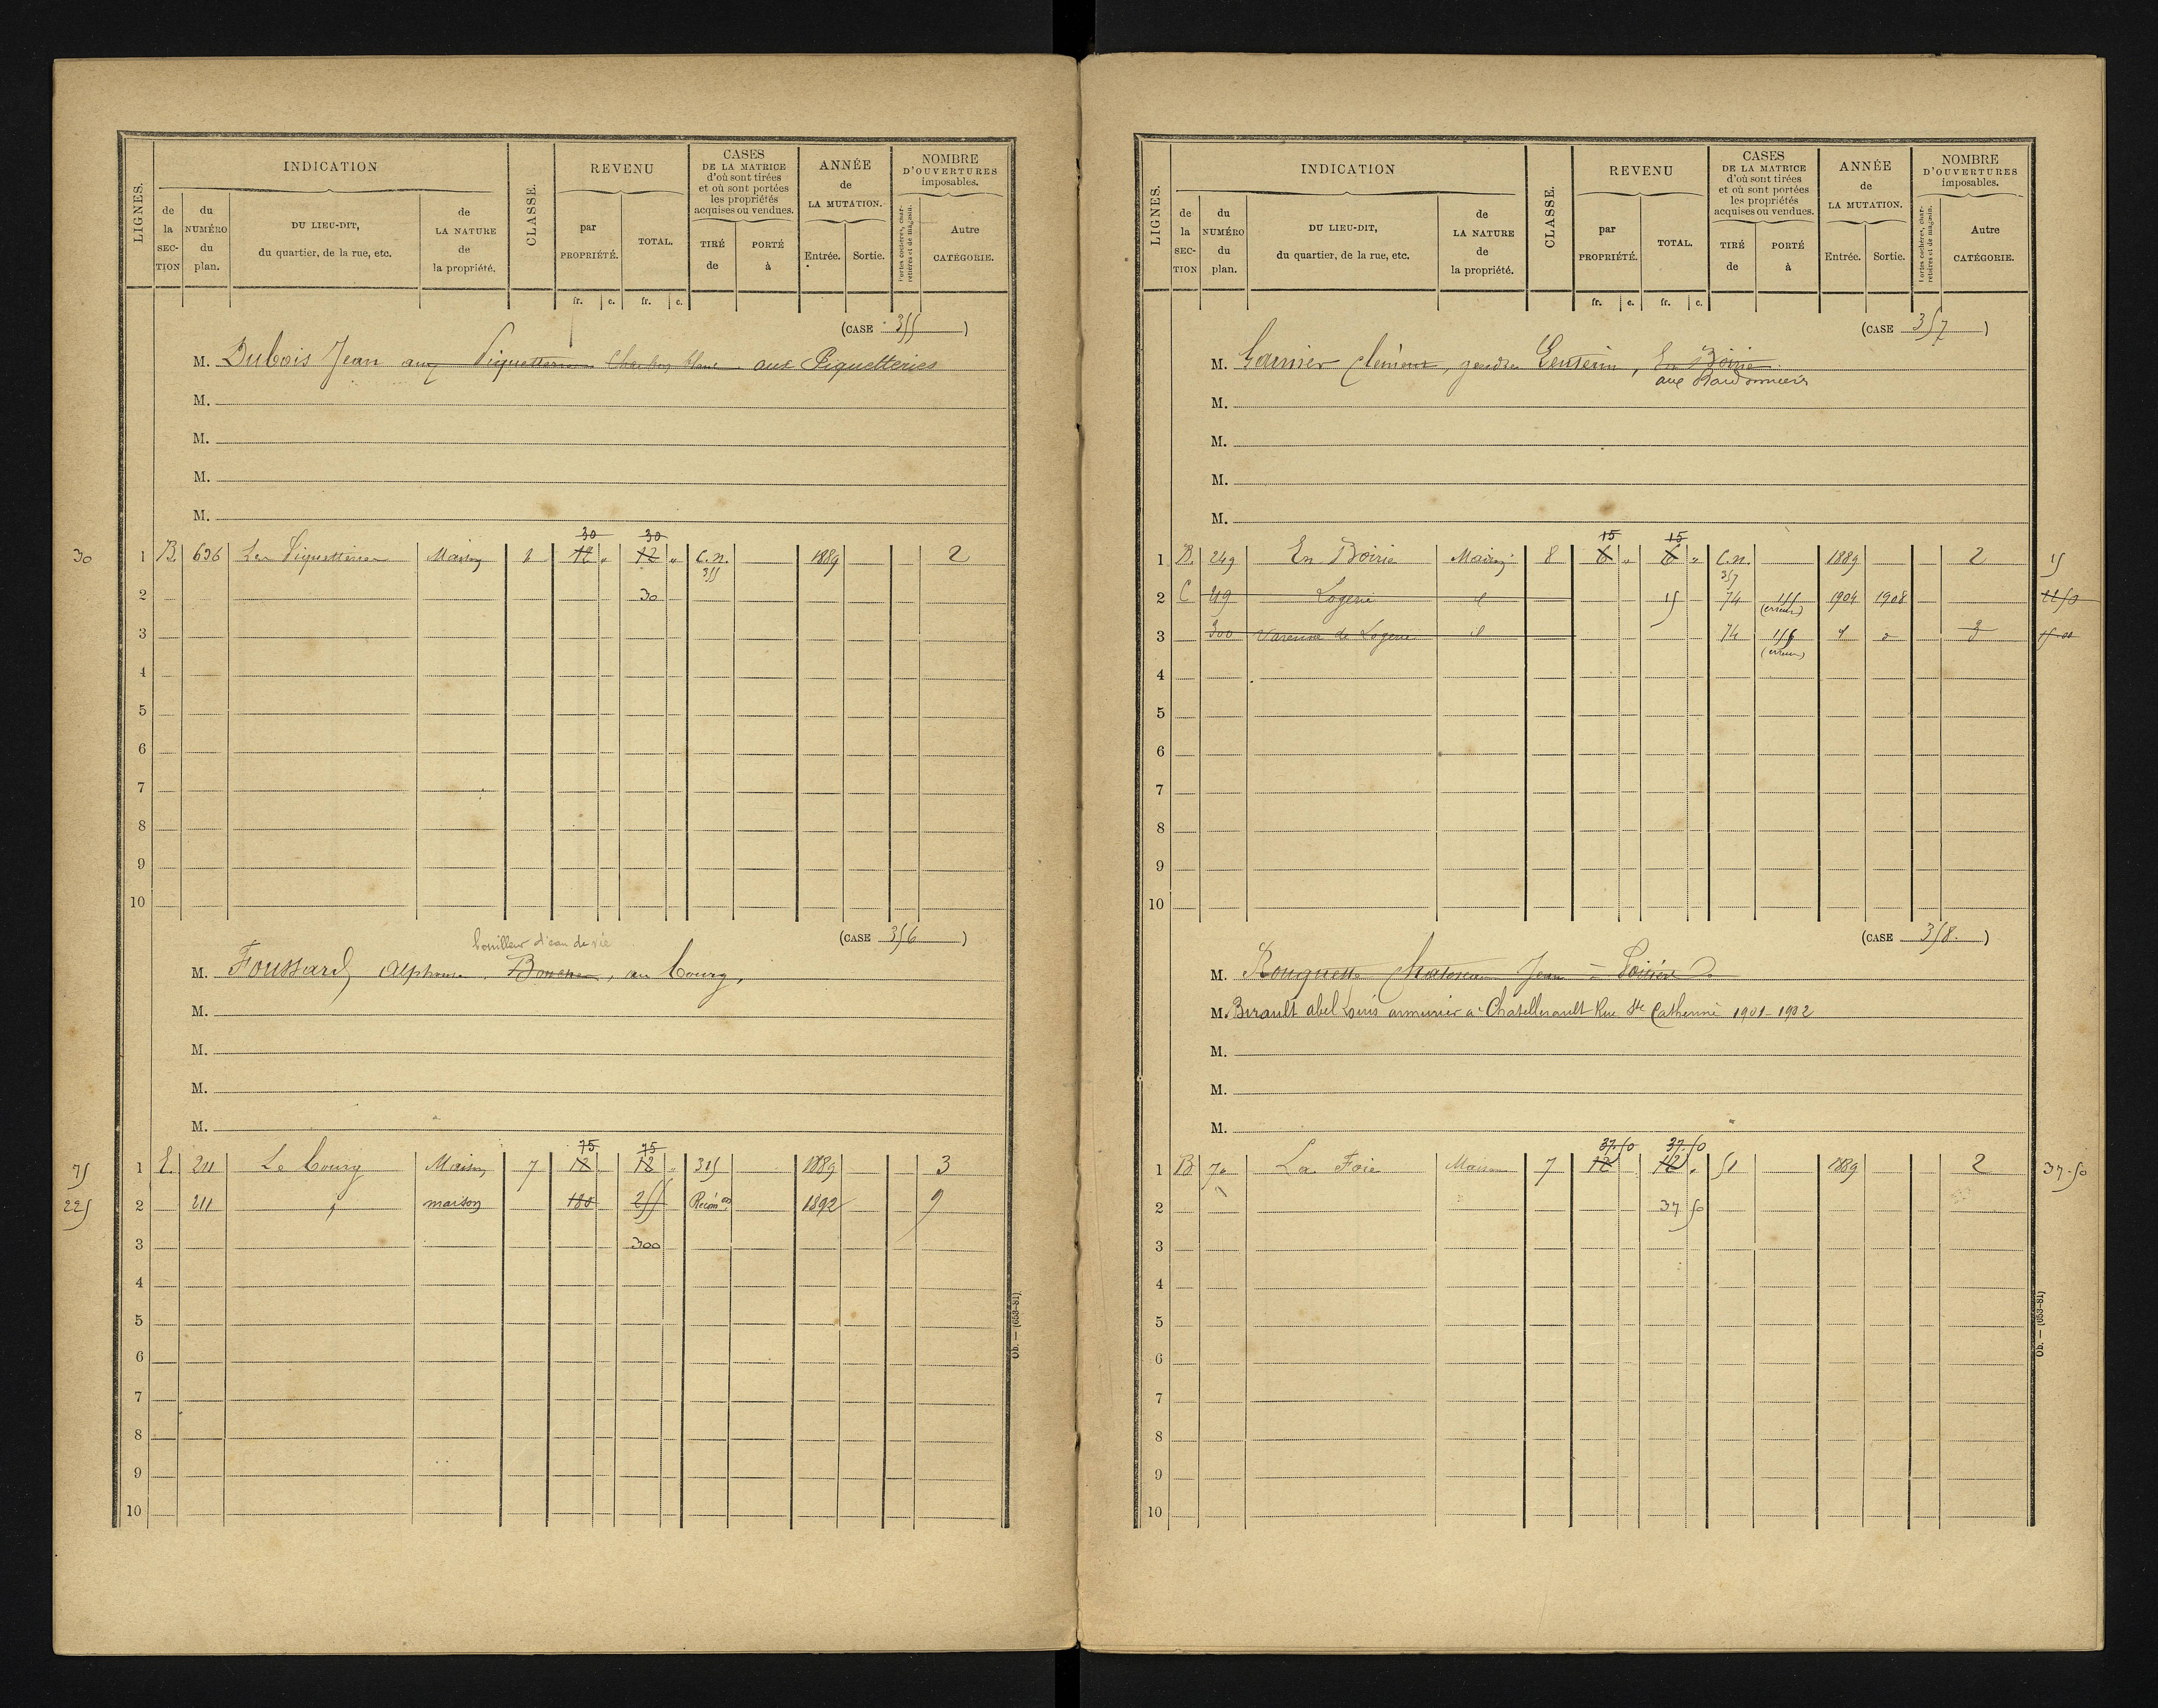 LIGNES.
INDICATION
de la SECTION
du NUMÉRO du plan.
DU LIEU-DIT, du quartier, de la rue, etc.
de LA NATURE de la propriété.
CLASSE.
REVENU
par PROPRIÉTÉ.
TOTAL.
CASES DE LA MATRICE d'où sont tirées et où sont portées les propriétés acquises ou vendues.
TIRÉ de
PORTÉ à
ANNÉE de LA MUTATION.
Entrée. Sortie.
NOMBRE D'OUVERTURES imposables.
Portes cochères, charretières et de magasin.
Autre CATÉGORIE.
fr. c. fr. c.
(CASE 355 )
M. Dubois Jean aux Piquetteries Charbon blanc aux Piquetteries
M.
M.
M.
M.
30 30
30 1 B. 636 Les Piquetteries Maison 12 " 12 " C.n. 1889 2
355
2 30
3
4
5
6
7
8
9
10
(CASE 356 )
bouilleur d'eau de vie
M. Foussard, Alphonse, au bourg,
M.
M.
M.
M.
75 75
75 1 E. 211 Le bourg Maison 7 12 12 " 315 1889 3
225 2 211 " maison 180 255 Récon on. 1892 9
3 300
4
5
6
7
8
9
10
Ob. — (653-81)
LIGNES.
INDICATION
de la SECTION
du NUMÉRO du plan.
DU LIEU-DIT, du quartier, de la rue, etc.
de LA NATURE de la propriété.
CLASSE.
REVENU
par PROPRIÉTÉ.
TOTAL.
CASES DE LA MATRICE d'où sont tirées et où sont portées les propriétés acquises ou vendues.
TIRÉ de
PORTÉ à
ANNÉE de LA MUTATION.
Entrée. Sortie.
NOMBRE D'OUVERTURES imposables.
Portes cochères, charretières et de magasin.
Autre CATÉGORIE.
fr. c. fr. c.
(CASE 357 )
M. Garnier Clément, gendre En Boirie
aux
M.
M.
M.
M.
15 15
1 B. 249 En Boirie Maison 8 6 " 6 " C.n. 1889 2 15
357
2 C 49 Logerie d 15 74 155 1904 1908 22 50
(erreur)
3 300 Varenne de Logerie d 74 156 d d 3 15 00
(erreur)
4
5
6
7
8
9
10
(CASE 358. )
M. Jean
M. Berault abel Louis armurier à Chatellerault Rue Ste Catherine 1901-1902
M.
M.
M.
37.50 37.50
1 B. 70 La Foie Maison 7 12 12 " 51 1889 2 37.50
2 37 50
3
4
5
6
7
8
9
10
Ob. — (653-81)